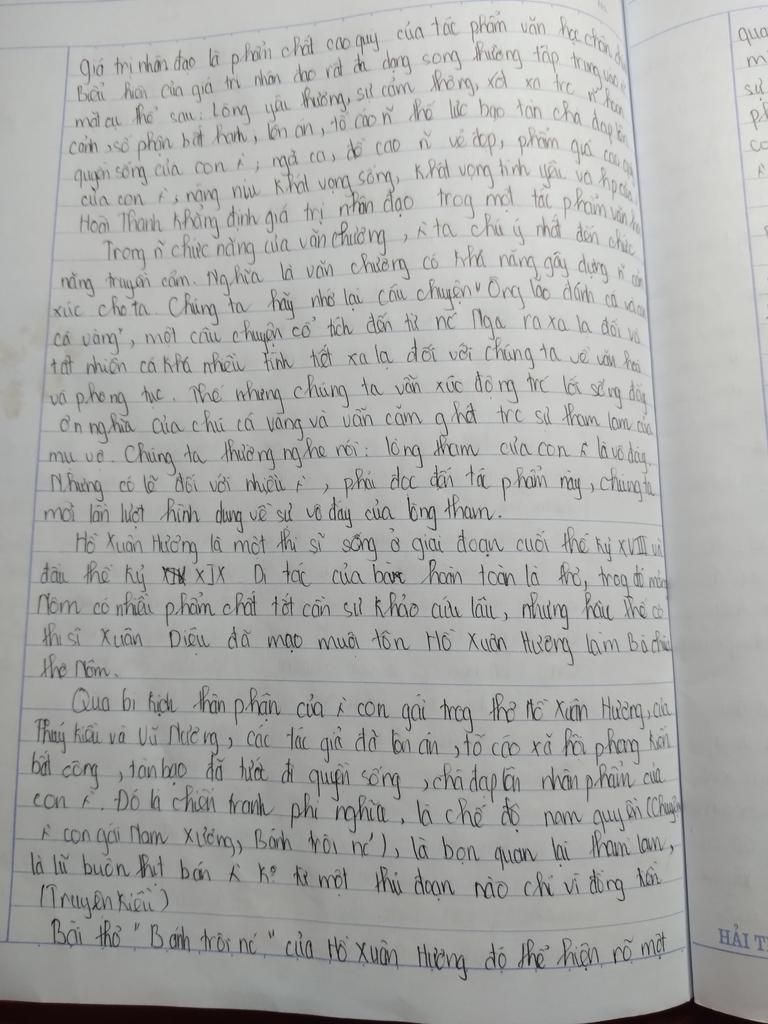 giá trị nhân đạo là phẩm chất cao quý của tác phẩm văn học chân
Biểu hiện của giá trị nhân đạo rất đa dạng song thường tập trung vào
một cụ thể sau: Lòng yêu thương, sự cảm thông, xót xa trc ~n hoàn
cảnh, số phận bất hạnh, lên án, tố cáo ~n thế lực bạo tàn chà đạp lên
quyền sống của con ~; ngợi ca, đề cao ~n vẻ đẹp, phẩm giá cao quý
của con ~, nâng niu khát vọng sống, khát vọng tình yêu và hp của
Hoài Thanh khẳng định giá trị nhân đạo trog một tác phẩm văn học
Trong ~n chức năng của văn chương, ~ ta chú ý nhất đến chức
năng truyền cảm. Nghĩa là văn chương có khả năng gây dựng ~n cảm
xúc cho ta. Chúng ta hãy nhớ lại câu chuyện "Ông lão đánh cá và con
cá vàng", một câu chuyện cổ tích đến từ nc' Nga xa xa lạ đối và
tất nhiên có khá nhiều tình tiết xa lạ đối với chúng ta về văn hoá
và phong tục. Thế nhưng chúng ta vẫn xúc động trc lối sống đầy
ơn nghĩa của chú cá vàng và vẫn căm ghét trc sự tham lam của
mụ vợ. Chúng ta thường nghe nói: lòng tham của con ~ là vô đáy.
Nhưng có lẽ đối với nhiều ~, phải đọc đến tác phẩm này, chúng ta
mới lần lượt hình dung về sự vô đáy của lòng tham.
Hồ Xuân Hương là một thi sĩ sống ở giai đoạn cuối thế kỷ XVIII và
đầu thế kỷ XIX Di tác của bà hoàn toàn là thơ, trog đó mảng
Nôm có nhiều phẩm chất tốt cần sự khảo cứu lâu, nhưng hậu thế có
thi sĩ Xuân Diệu đã mạo muội tôn Hồ Xuân Hương làm Bà chúa
thơ Nôm.
Qua bi kịch thân phận của ~ con gái trog thơ Hồ Xuân Hương, của
Thuý Kiều và Vũ Nương, các tác giả đã lên án, tố cáo xã hội phong kiến
bất công, tàn bạo đã tước đi quyền sống, chà đạp lên nhân phẩm của
con ~. Đó là chiến tranh phi nghĩa, là chế độ nam quyền (Chuyện
~ con gái Nam Xương, Bánh trôi nc'), là bọn quan lại tham lam,
là lũ buôn thịt bán ~ ko từ một thủ đoạn nào chỉ vì đồng tiền
(Truyện Kiều)
Bài thơ "Bánh trôi nc'" của Hồ Xuân Hương đó thể hiện rõ một
HẢI T